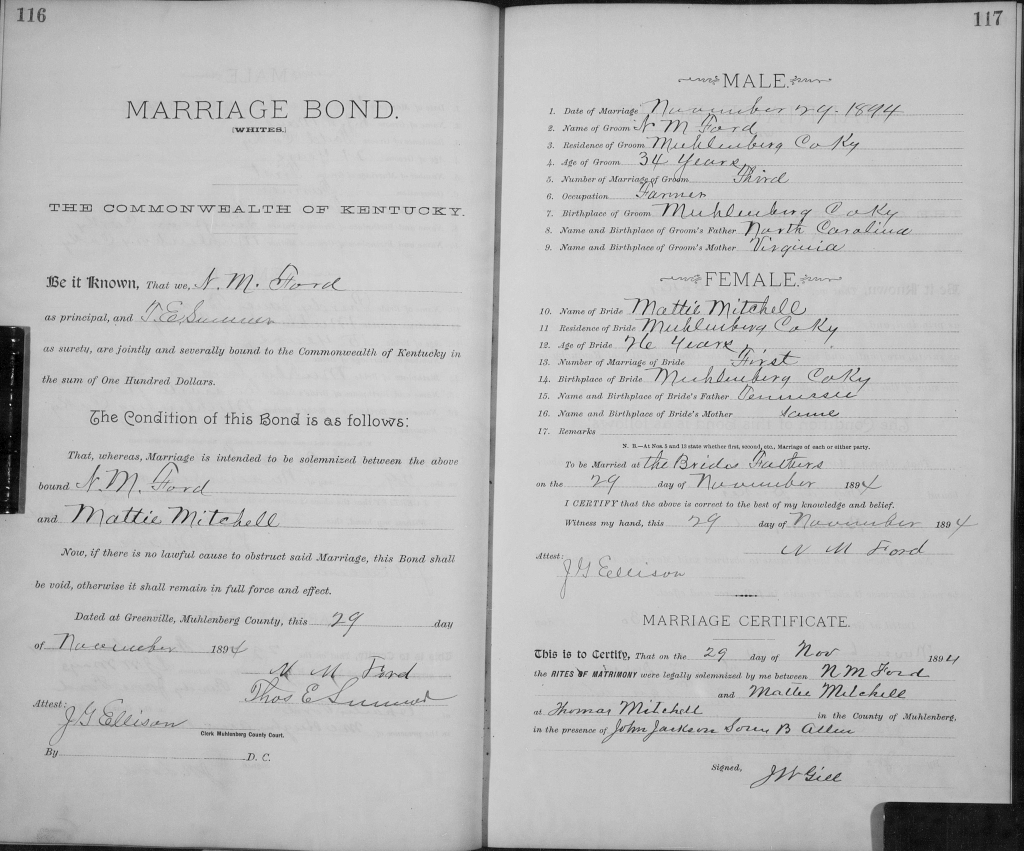 116
MARRIAGE BOND.
[WHITES.]
THE COMMONWEALTH OF KENTUCKY.
Be it Known, That we, N. M. Ford
as principal, and T. E. Sumner
as surety, are jointly and severally bound to the Commonwealth of Kentucky in
the sum of One Hundred Dollars.
The Condition of this Bond is as follows:
That, whereas, Marriage is intended to be solemnized between the above
bound N. M. Ford
and Mattie Mitchell
Now, if there is no lawful cause to obstruct said Marriage, this Bond shall
be void, otherwise it shall remain in full force and effect.
Dated at Greenville, Muhlenberg County, this 29 day
of November 1894
N M Ford
Thos E
Attest:
J G Ellison
Clerk Muhlenberg County Court.
By D. C.
117
MALE.
1. Date of Marriage November 29. 1894
2. Name of Groom N M Ford
3. Residence of Groom Muhlenberg Co Ky
4. Age of Groom 34 years
5. Number of Marriage of Groom Third
6. Occupation Farmer
7. Birthplace of Groom Muhlenberg Co Ky
8. Name and Birthplace of Groom's Father North Carolina
9. Name and Birthplace of Groom's Mother Virginia
FEMALE.
10. Name of Bride Mattie Mitchell
11 Residence of Bride Muhlenberg Co Ky
12. Age of Bride 26 Years
13. Number of Marriage of Bride First
14. Birthplace of Bride Muhlenberg Co Ky
15. Name and Birthplace of Bride's Father Tennessee
16. Name and Birthplace of Bride's Mother Same
17. Remarks
N. B.—At Nos. 5 and 13 state whether first, second, etc., Marriage of each or either party.
To be Married at the Brides Fathers
on the 29 day of November 1894
I CERTIFY that the above is correct to the best of my knowledge and belief.
Witness my hand, this 29 day of November 1894
N M Ford
Attest:
J G Ellison
MARRIAGE CERTIFICATE.
This is to Certify, That on the 29 day of Nov 1894
the RITES OF MATRIMONY were legally solemnized by me between N M Ford
and Mattie Mitchell
at Thomas Mitchell in the County of Muhlenberg,
in the presence of John Jackson B Allen
Signed, J W Gill